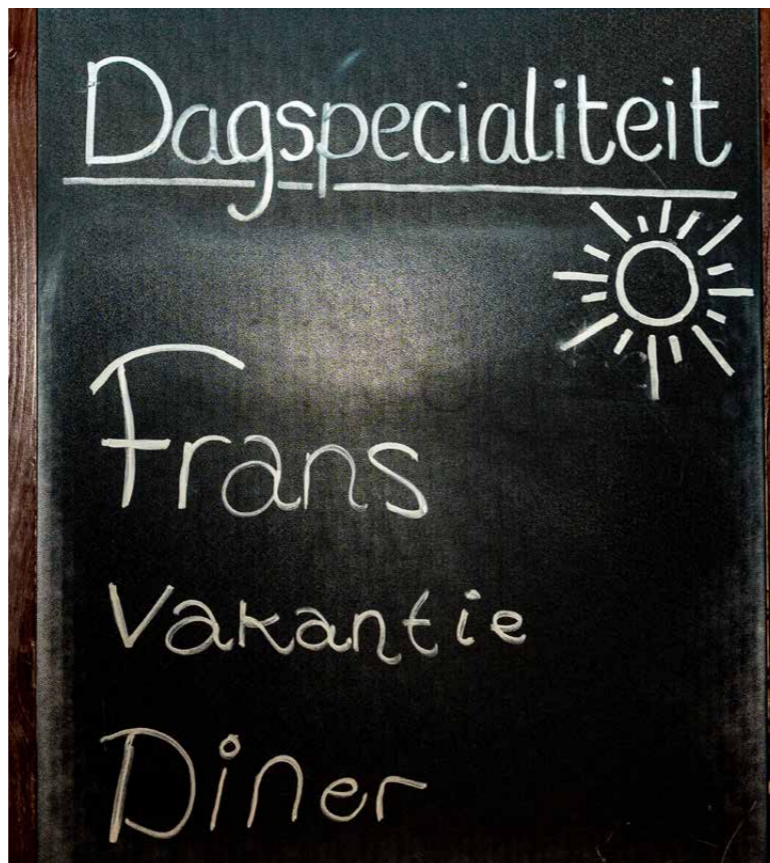 Dagspecialiteit
Frans
Vakantie
Diner